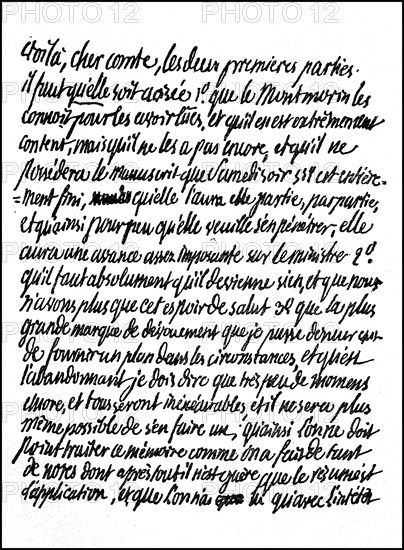 Voilà, cher comte, les deux premieres parties.
il faut qu'elle soit avisée 1º. que le Montmorin les
connoit pour les avoir lües, et qu'il en est extrêmement
content, mais qu'il ne les a pas encore, et qu'il ne
possédera le manuscrit que Samedi soir s'il est entière-
=ment fini, qu'elle l'aura elle partie, par parties,
et qu'ainsi pour peu qu'elle veuille s'en pénétrer, elle
aura une avance assez imposante sur le ministre 2º.
qu'il faut absolument qu'il devienne sien, et que nous
n'avons plus que cet espoir de salut 3º que la plus
grande marque de dévouement que je puisse donner
de fournir un plan dans les circonstances, et qu'en
l'abandonnant je dois dire que très peu de momens
encore, et tous seront inexécutables et il ne sera plus
même possible de s'en faire un; qu'ainsi l'on ne doit
point traiter ce mémoire comme on a fait de tant
de notes dont après tout il n'est guère que le résumé et
l'application, et que l'on n'a lu qu'avec l'intérêt
PHOTO 12